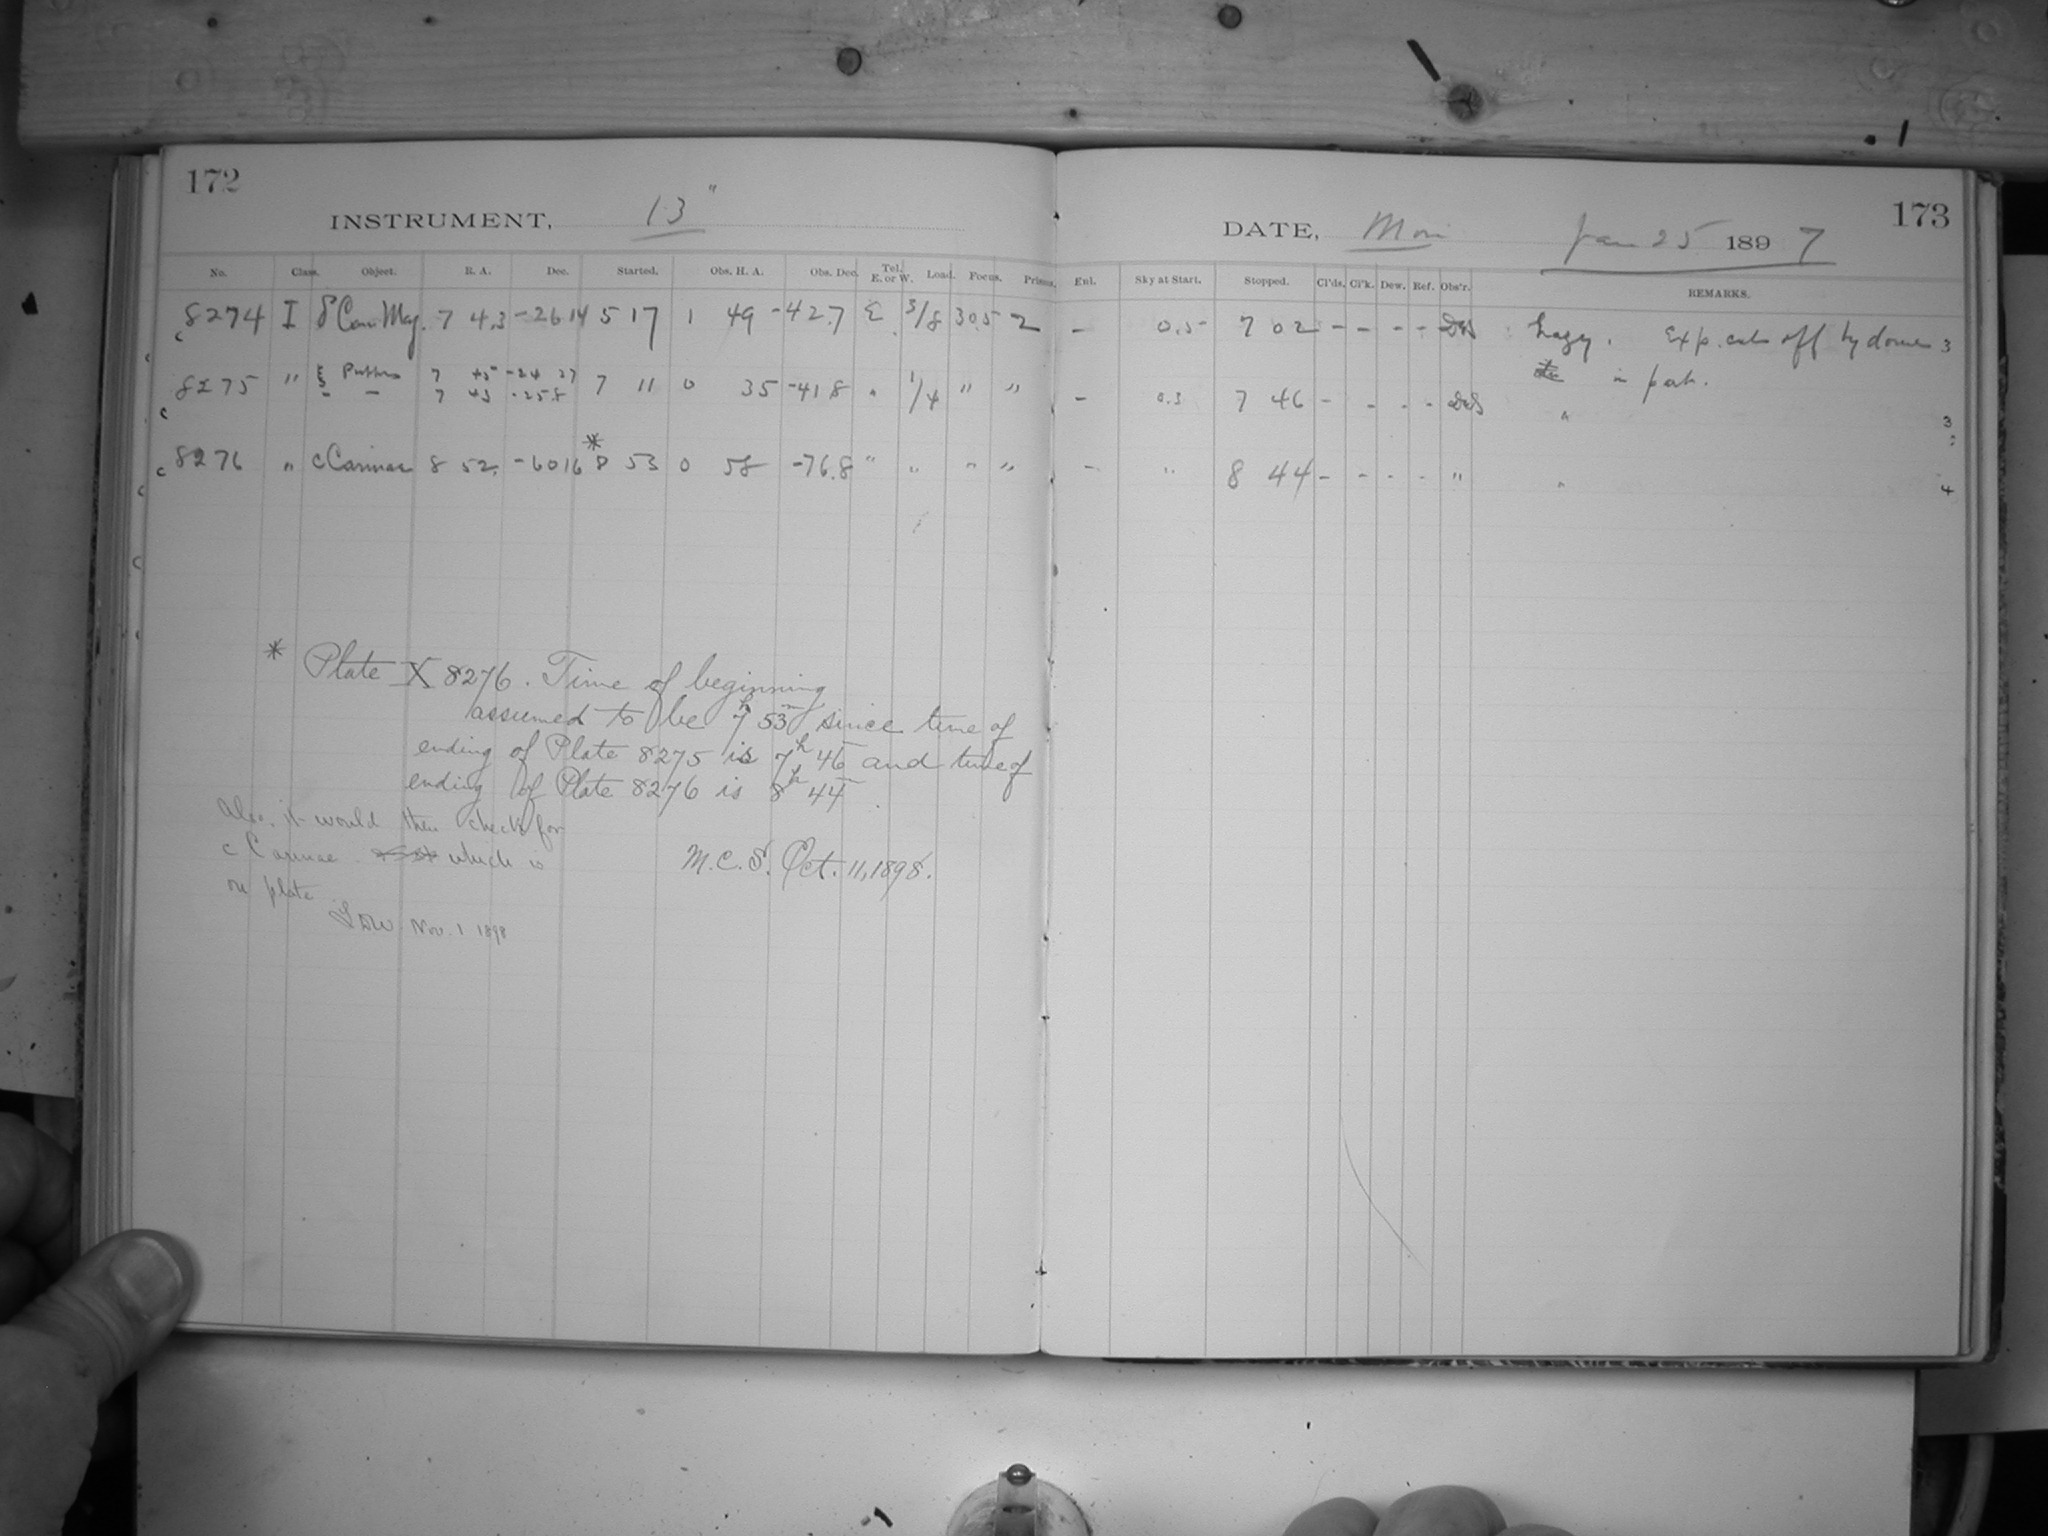 172
INSTRUMENT, 13"
No. Class. Object. R. A. Dec. Started. Obs. H. A. Obs. Dec. Tel. E. or W. Load. Focus. Prisms.
8274 I δ Can Maj. 7 4.3 -26 14 5 17 1 49 -42.7 E 3/8 30.5 2
8275 " ξ Puppis 7 45 -24 37 7 11 0 35 -41.8 " 1/4 " "
" — 7 43 -25.8
c 8276 " c Carinae 8 52. -60 16 * 8 53 0 58 -76.8 " " " "
* Plate X 8276. Time of beginning
assumed to be 7h 53m since time of
ending of Plate 8275 is 7h 46m and time of
ending of Plate 8276 is 8h 44m.
Also, it would then check for
c Carinae which is
on plate
M. C. S. Oct. 11, 1898.
LDW. Nov. 1 1898
173
DATE, Mon Jan 25 1897
Enl. Sky at Start. Stopped. Cl'ds. Cl'k. Dew. Ref. Obs'r. REMARKS.
- 0.5 7 02 - - - - hazy. Exp. cut off by dome 3
in part.
- 0.3 7 46 - - - - " 3
- " 8 44 - - - - " " 4